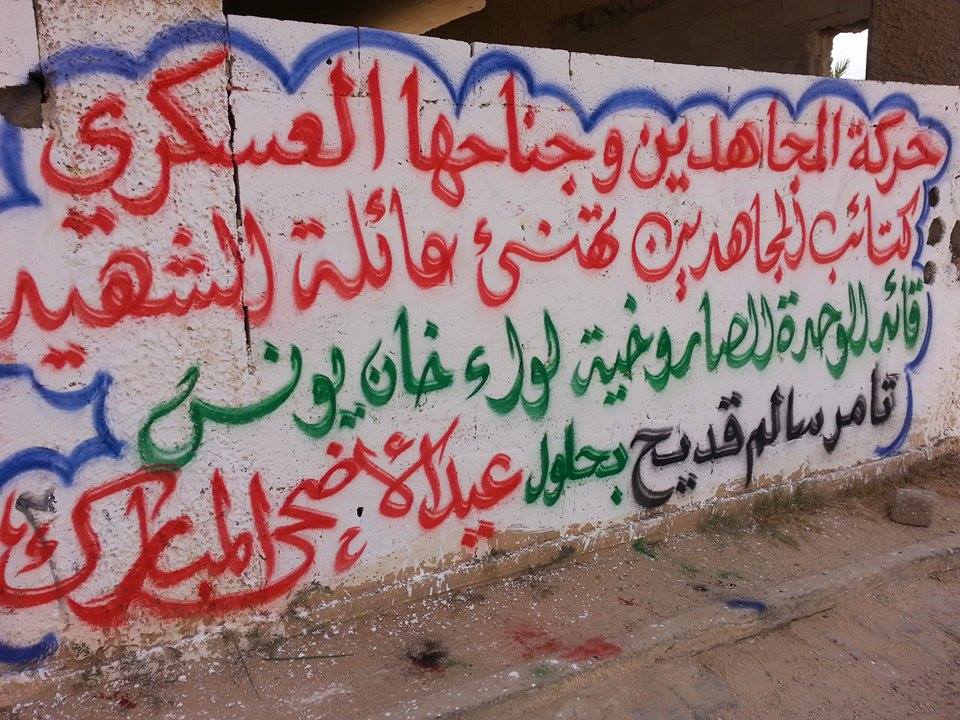 حركة المجاهدين وجناحها العسكري
كتائب المجاهدين تهنئ عائلة الشهيد
قائد الوحدة الصاروخية لواء خان يونس
تامر سالم قديح بحلول عيد الأضحى المبارك